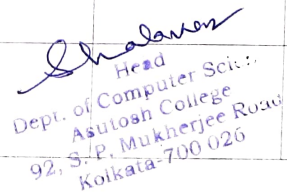 Head
Dept. of Computer Sci
Asutosh College
92, S. P. Mukherjee Road
Kolkata-700 026